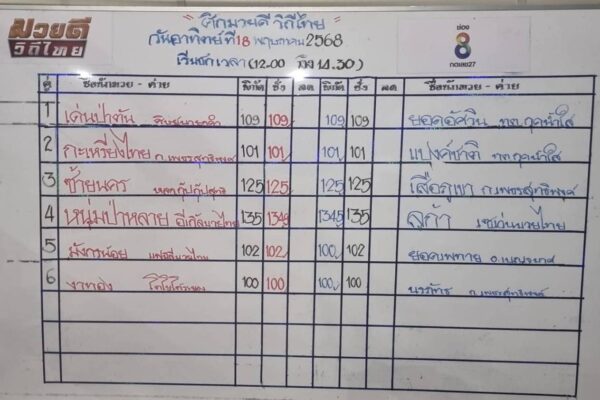 มวยดี วิถีไทย
"ศึกมวยดี วิถีไทย"
วันอาทิตย์ที่ 18 พฤษภาคม 2568
เริ่มชกเวลา (12.00 ถึง 14.30)
ช่อง 8 กดเลข27
คู่ ชื่อนักมวย - ค่าย พิกัด ชั่ง ลด พิกัด ชั่ง ลด ชื่อนักมวย - ค่าย
1 เด่นป่าตัน 109 109 109 109 ยอดอัศวิน
2 กะเหรี่ยงไทย ก.เพชรสุทธิพงษ์ 101 101 101 101 แบงค์ชาติ
3 ซ้ายนคร 125 125 125 125 เสือภูเขา ก.เพชรสุทธิพงษ์
4 หนุ่มป่าหลาย 135 134.5 134.5 135 ลูก้า
5 มังกรน้อย 102 102 100 102
6 งาทอง 100 100 100 100 ก.เพชรสุทธิพงษ์